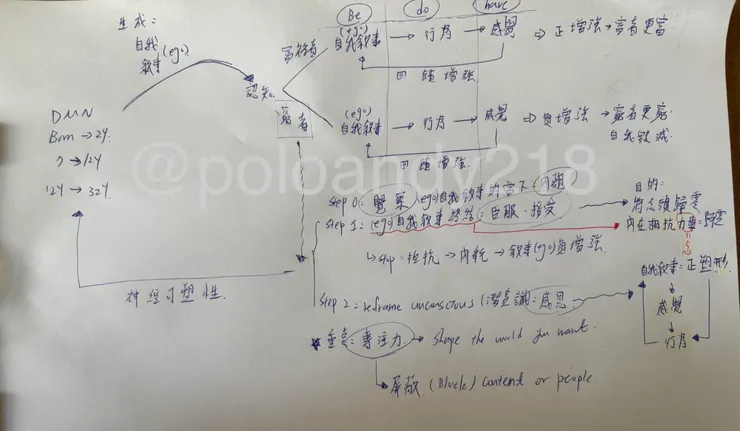 生成:
自我
敘事(ego)
認知
DMN
Born → 2y.
? → 12y
12y → 32y
神經可塑性.
Be do have
富裕者
(ego)
自我敘事 → 行為 → 感覺 ⇒ 正增強 → 富者更富
回饋增強
窮者
(ego)
自我敘事 → 行為 → 感覺 ⇒ 負增強 → 窮者更窮
自我毀滅
回饋增強
@poloandy218
step 0: 覺察 (ego)自我敘事的當下:
step 1: (ego)自我敘事終結: 臣服.接受
目的:
歸零
內在抵抗力量=歸零
stop = 抵抗 → 內耗 → 敘事(ego)負增強.
step 2 = reframe unconscious (潛意識): 感恩
自我敘事=正塑形.
感覺
行為
專注力 → shape the world you want.
屏蔽. (Block) content or people.